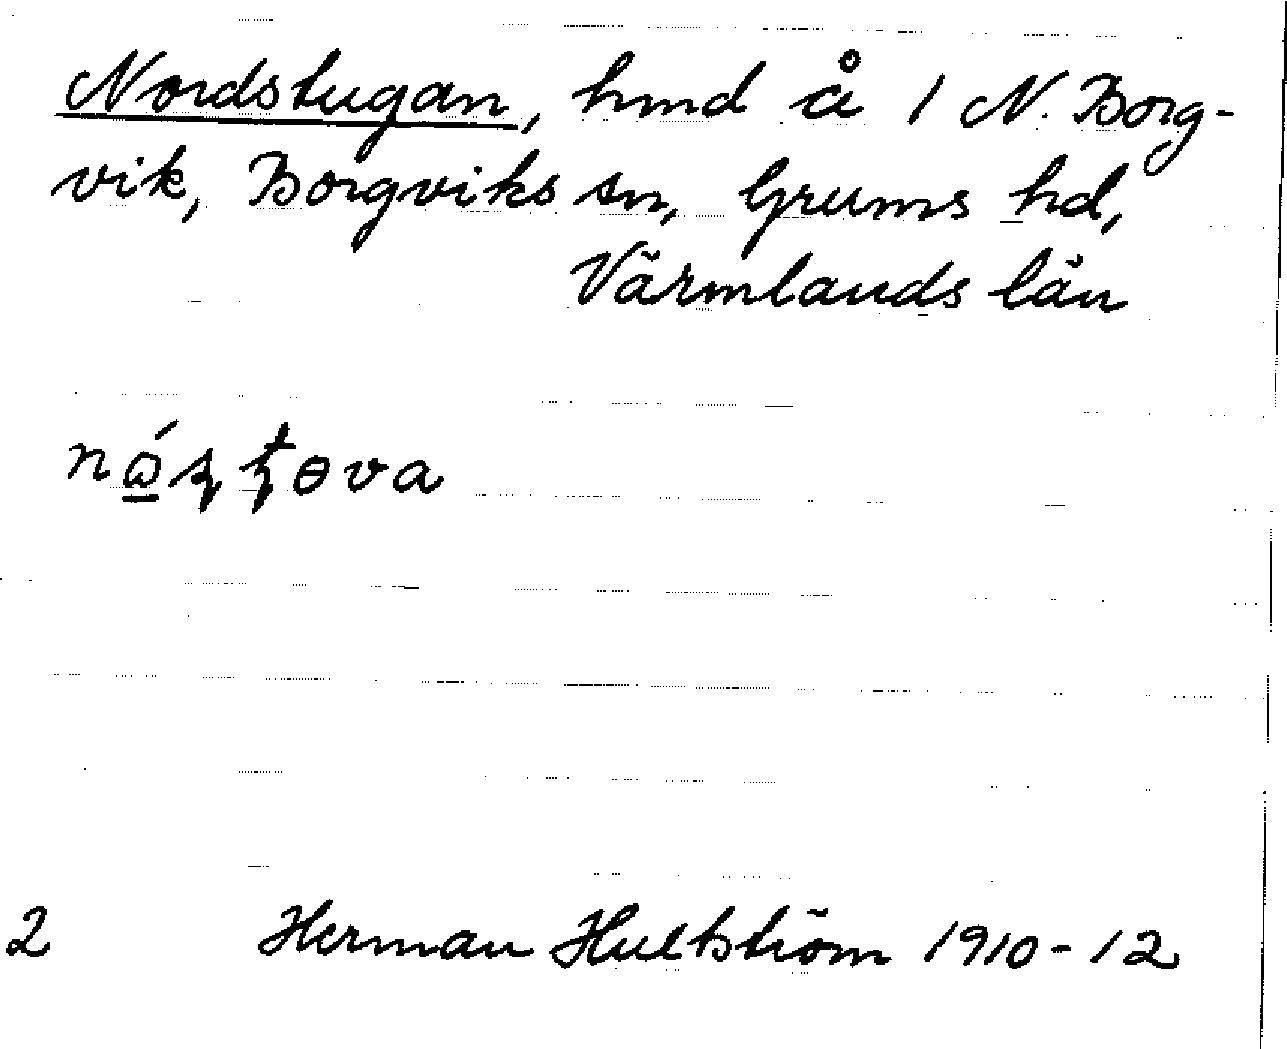 Nordstugan, hmd å 1 N. Borg-
vik, Borgviks sn, Grums hd,
Värmlands län
2 Herman Hultström 1910-12